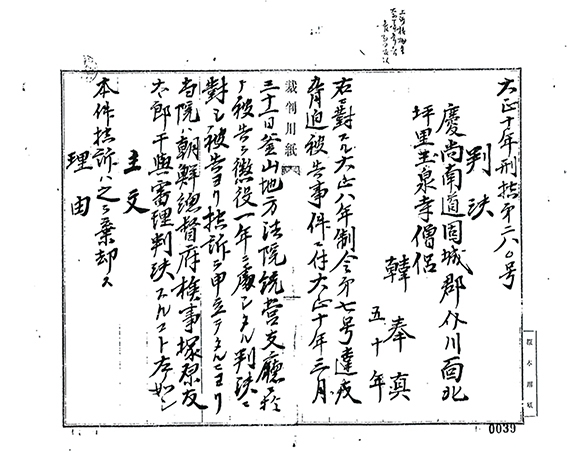 大正十年刑控第二八〇号
判決
慶尚南道固城郡介川面北
坪里玉泉寺僧侶
韓奉眞
五十年
右ニ對スル大正八年制令第七号違反
脅迫被告事件ニ付大正十年三月
裁判用紙
三十一日釜山地方法院統營支廳ニ於
テ被告ヲ懲役一年ニ處シタル判決ニ
對シ被告ヨリ控訴ヲ申立テタルニヨリ
当院ハ朝鮮總督府檢事塚原友
太郎干與審理判決スルコト左ノ如シ
主文
本件控訴ハ之ヲ棄却ス
理由
0039